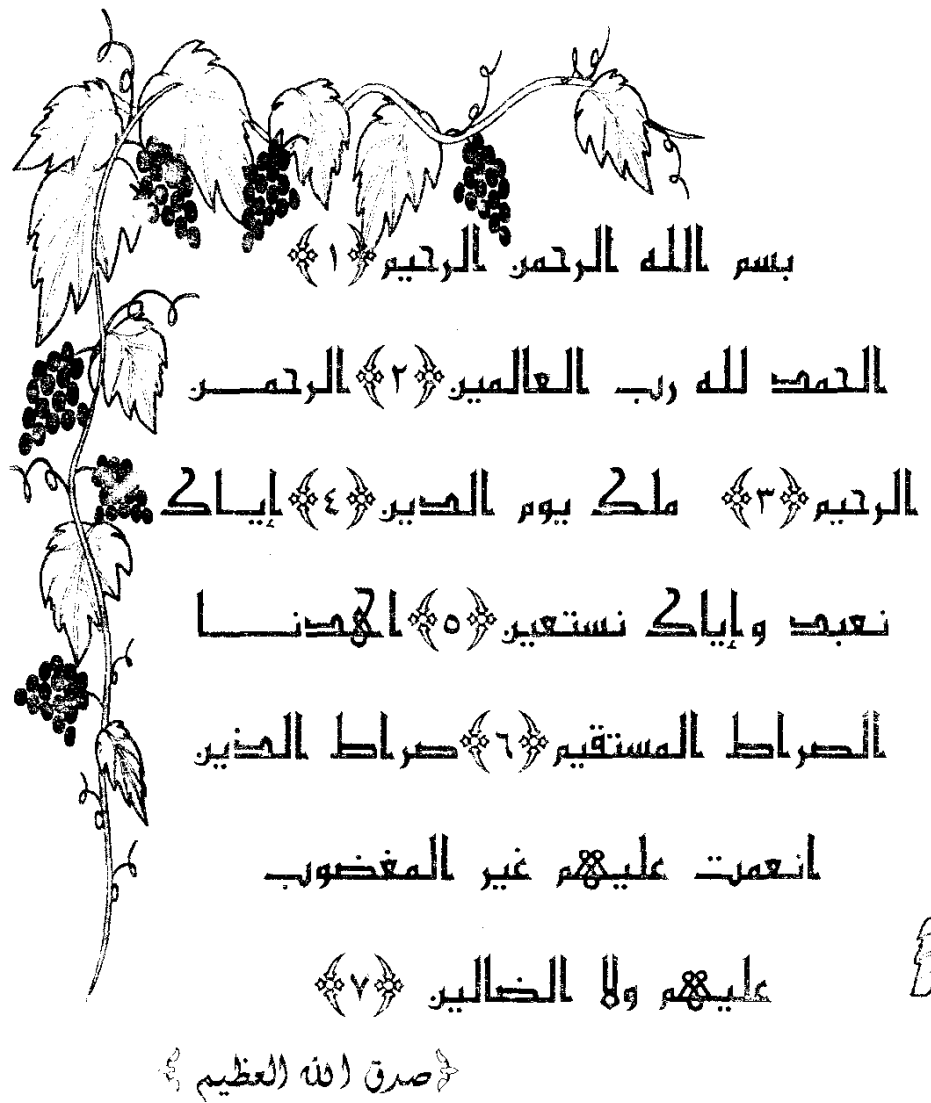 بسم الله الرحمن الرحيم ﴿١﴾
الحمد لله رب العالمين ﴿٢﴾ الرحمـــن
الرحيم ﴿٣﴾ ملك يوم الدين ﴿٤﴾ إيــاك
نعبد وإياك نستعين ﴿٥﴾ اهدنـــــا
الصراط المستقيم ﴿٦﴾ صراط الذين
انعمت عليهم غير المغضوب
عليهم ولا الضالين ﴿٧﴾
﴿صدق الله العظيم﴾